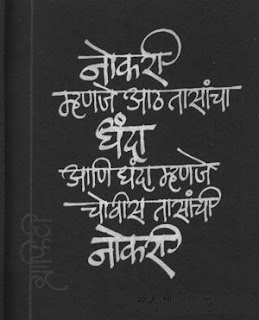 नोकरी
म्हणजे आठ तासांचा
धंदा
आणि धंदा म्हणजे
चोवीस तासांची
नोकरी